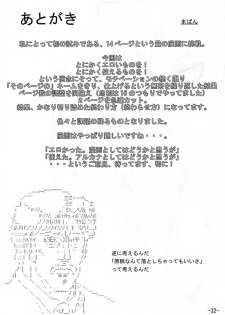 あとがき
まばん
私にとって初の試みである、14ページという量の漫画に挑戦。
今回は
とにかくエロいものを!
とにかく使えるものを!
という信念にそって、モチベーションの続く限り
「そのページの」ネームをきり、仕上げるという無茶を繰り返した結果
ページ数の調整を間違え(最初は16のつもりでやってました)
2ページを急遽カット。
結果、かなり切り詰めた終わり方(終わらせ方)になってます。
色々と課題の残るものとなりました。
漫画はやっぱり難しいですね・・・。
「エロかった。漫画としてはどうかと思うが」
「使えた。アルカナとしてはどうかと思うが」
・・・というご意見、待ってます、切に!
逆に考えるんだ
「原稿なんて落としちゃってもいいさ」
って考えるんだ
-32-